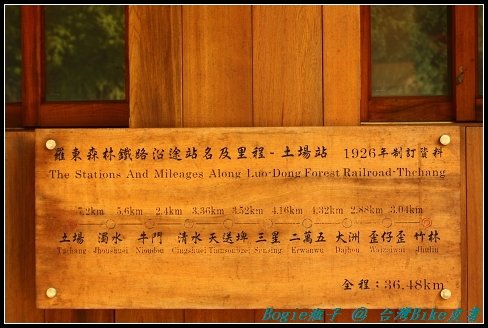 羅東森林鐵路沿途站名及里程-土場站 1926年制訂資料
The Stations And Mileages Along Luo-Dong Forest Railroad-Thchang
7.2km 5.6km 2.4km 3.36km 3.52km 4.16km 4.32km 2.88km 3.04km
土場 濁水 牛門 清水 天送埤 三星 二萬五 大洲 歪仔歪 竹林
Tuchang Jhoushuei Nioudou Cingshuei Tiansongpei Sansing Erwanwu Dajhou Waizaiwai Jhulin
全程：36.48km
Bogie瓶子 @ 台灣Bike